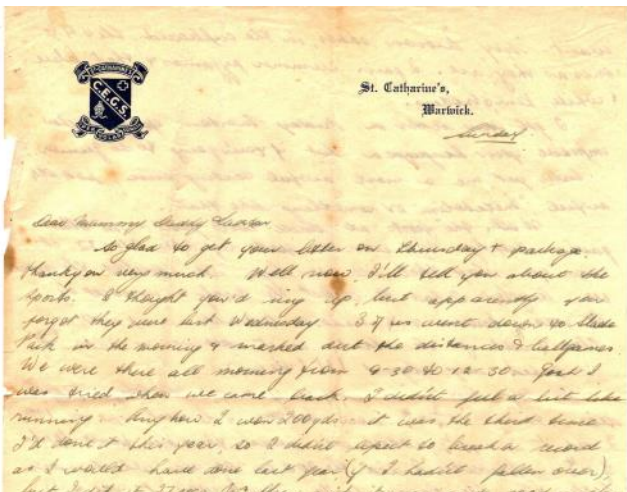 ST. CATHARINE'S
C.E.G.S.
St. Catharine's,
Warwick.
Sunday
Dear Mummy Daddy
So glad to get your letter on Thursday & package.
thankyou very much. Well now, I'll tell you about the
sports. I thought you'd ring up, but apparently you
forgot they were last Wednesday. 3 of us went down to Slade
Park in the morning & marked out the distances & ballgames.
We were there all morning from 9-30 to 12-30. Gosh I
was tired when we came back. I didn't feel a bit like
running. Anyhow I won 200yds. it was the third time
I'd done it this year, so I didn't expect to break a record
as I would have done last year (if I hadn't fallen over),
but I did it